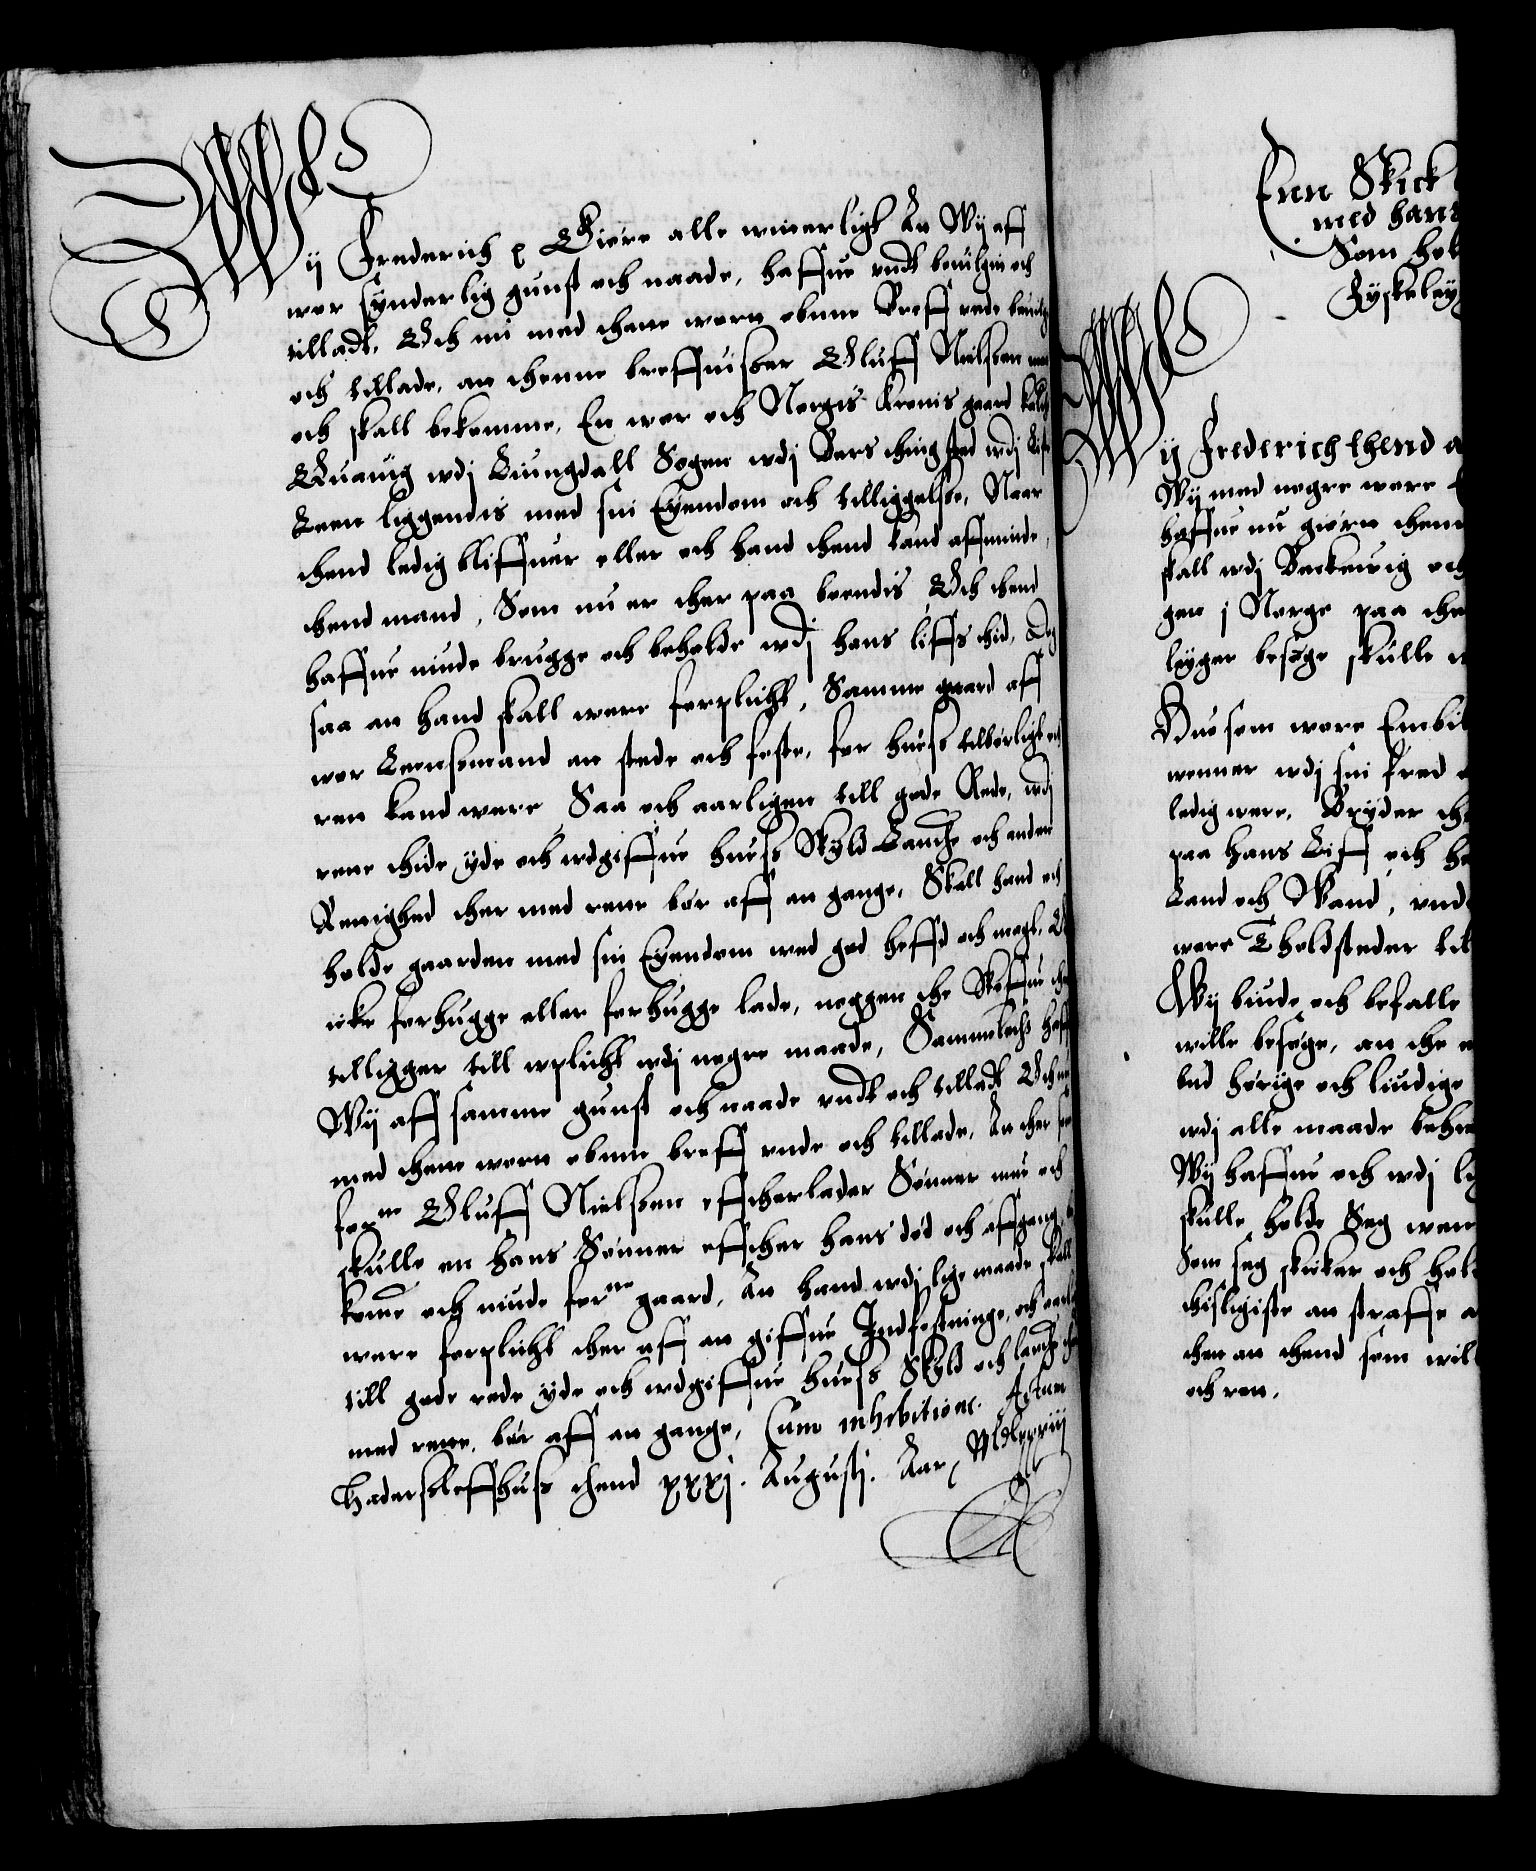 Wij Frederich p Giøre alle witterligt At Wij aff
wor synderlig gunst och naade, haffue undt beuilget och
tilladt, Och nu med thette wort obne Breff unde beuilge
och tillade, at thenne breffuisser Oluff Nielssen maa
och skall bekomme, En wor och Norgis Kronis gaard kaldis
Quauig wdj Liungdall Sogen wdj Vars thingsted wdj Liste
Leen liggendis med sin Eyendom och tilliggelsse, Naar
thend ledig bliffuer eller och hand thend kand affminde,
thend mand, Som nu er ther paa boendis Och thend
haffue niude brugge och beholde wdj hans liffs thid, Dog
saa at hand skall were forplicht, Samme gaard aff
wor Leensmand at stede och feste, for huess tilbørligt och
ret kand were Saa och aarligen till gode Rede, wdj
rette thide yde och wdgiffue huess Skyld Landz och anden
Rettighed ther med rette bør aff at gange, Skall hand och
holde gaarden med sin Eyendom wed god heffd och magt, Och
icke forhugge eller forhugge lade, noggen the Skoffue ther
tilligger till wplicht wdj nogre maade, Sammeledis haffue
Wij aff samme gunst och naade undt och tilladt Och nu
med thette wort obne breff unde och tillade, At ther som
forne Oluff Nielssen effterlader Sønner maa och
skulle en hans Sønner effther hans død och affgang be
komme och niude forne gaard, At hand wdj lige maade skall
were forplicht ther aff at giffue Indfestninge, och aarligen
till gode rede yde och wdgiffue huess Skyld och landz ther
med rette, bør aff at gange, Cum inhibitione. Actum
Haderssleffhuss thend xxxj. Augusti. Aar, Mdlxxxiij
Enn Skick
med hans
Som hol
Tyskeley
Wij Frederich thend a
Wij med nogre wore
haffue nu giørt then
skall wdj Beckeuig och
gen j Norge paa the
leyger besøge skulle
Bue som wore Embit
wenner wdj sin fred
ledig were, Bryder the
paa hans Liff och ha
Land och Wand, und
wore Tholdsteder til
Wij biude och befalle
wille besøge, at the
lud hørige och liudige
wdj alle maade beher
Wij haffue och wdj li
skulle holde Seg wen
Som seg skicker och hold
thisligiste at straffe a
ther at thend som will
och ret.